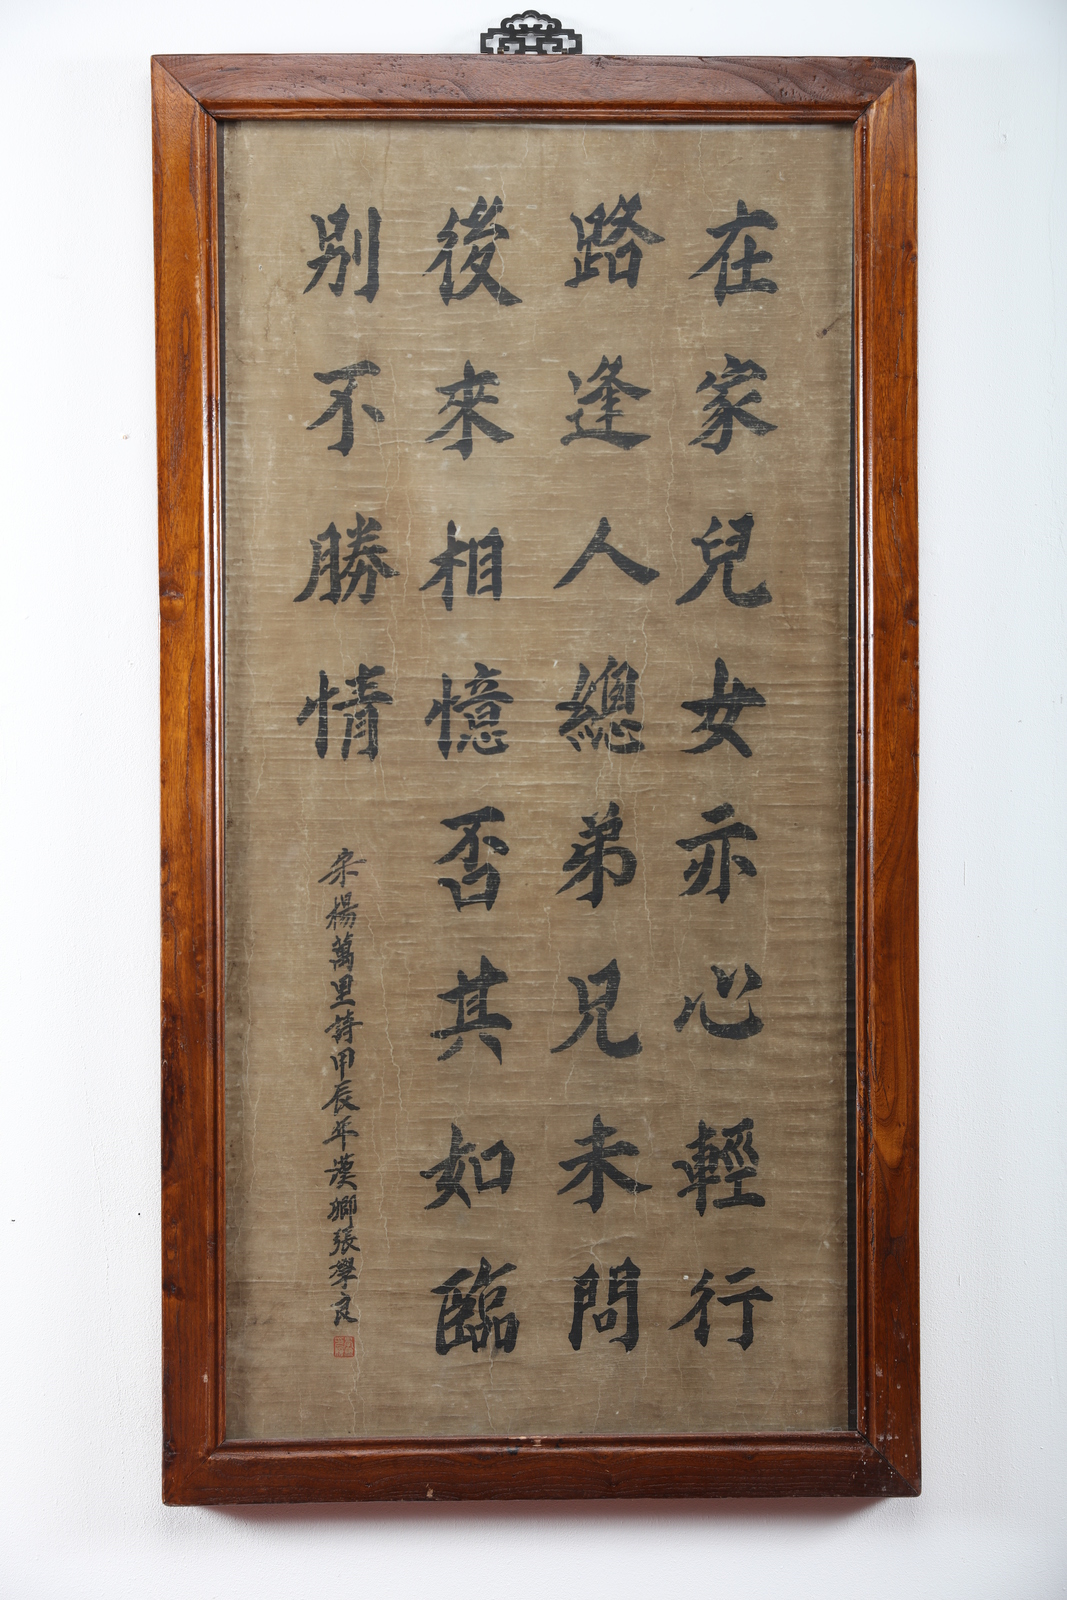 在家兒女亦心輕行
路逢人總弟兄未問
後來相憶否其如臨
别不勝情
宋楊萬里詩甲辰年漢卿張學良